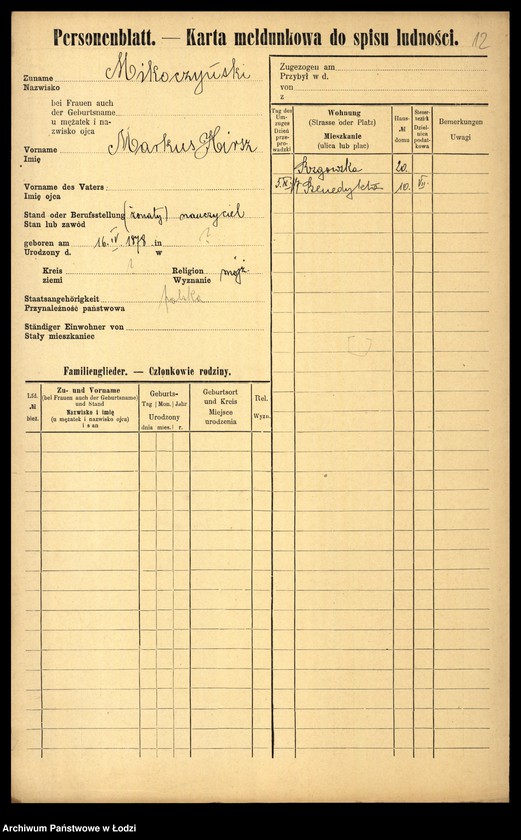 Personenblatt. — Karta meldunkowa do spisu ludności.
12
Zuname Mikoczyński
Nazwisko
bei Frauen auch
der Geburtsname
u mężatek i na-
zwisko ojca
Vorname Markus Hirsz
Imię
Vorname des Vaters
Imię ojca
Stand oder Berufsstellung (żonaty) nauczyciel
Stan lub zawód
geboren am 16. IV. 1878 in ?
Urodzony d. w
Kreis ? Religion mojż
ziemi Wyznanie
Staatsangehörigkeit polska
Przynależność państwowa
Ständiger Einwohner von
Stały mieszkaniec
Zugezogen am
Przybył w d.
von
z
Tag des Um-zuges Dzień prze-prowadzki
Wohnung (Strasse oder Platz) Mieszkanie (ulica lub plac)
Haus- № domu
Steuer-bezirk Dziel-nica podat-kowa
Bemerkungen Uwagi
20.
Benedykta 10. VII.
Familienglieder. — Członkowie rodziny.
Lfd. № bież.
Zu- und Vorname (bei Frauen auch der Geburtsname) und Stand Nazwisko i imię (u mężatek i nazwisko ojca) i stan
Geburts- Tag Mon. Jahr Urodzony dnia mies. r.
Geburtsort und Kreis Miejsce urodzenia
Rel. Wyzn.
Archiwum Państwowe w Łodzi